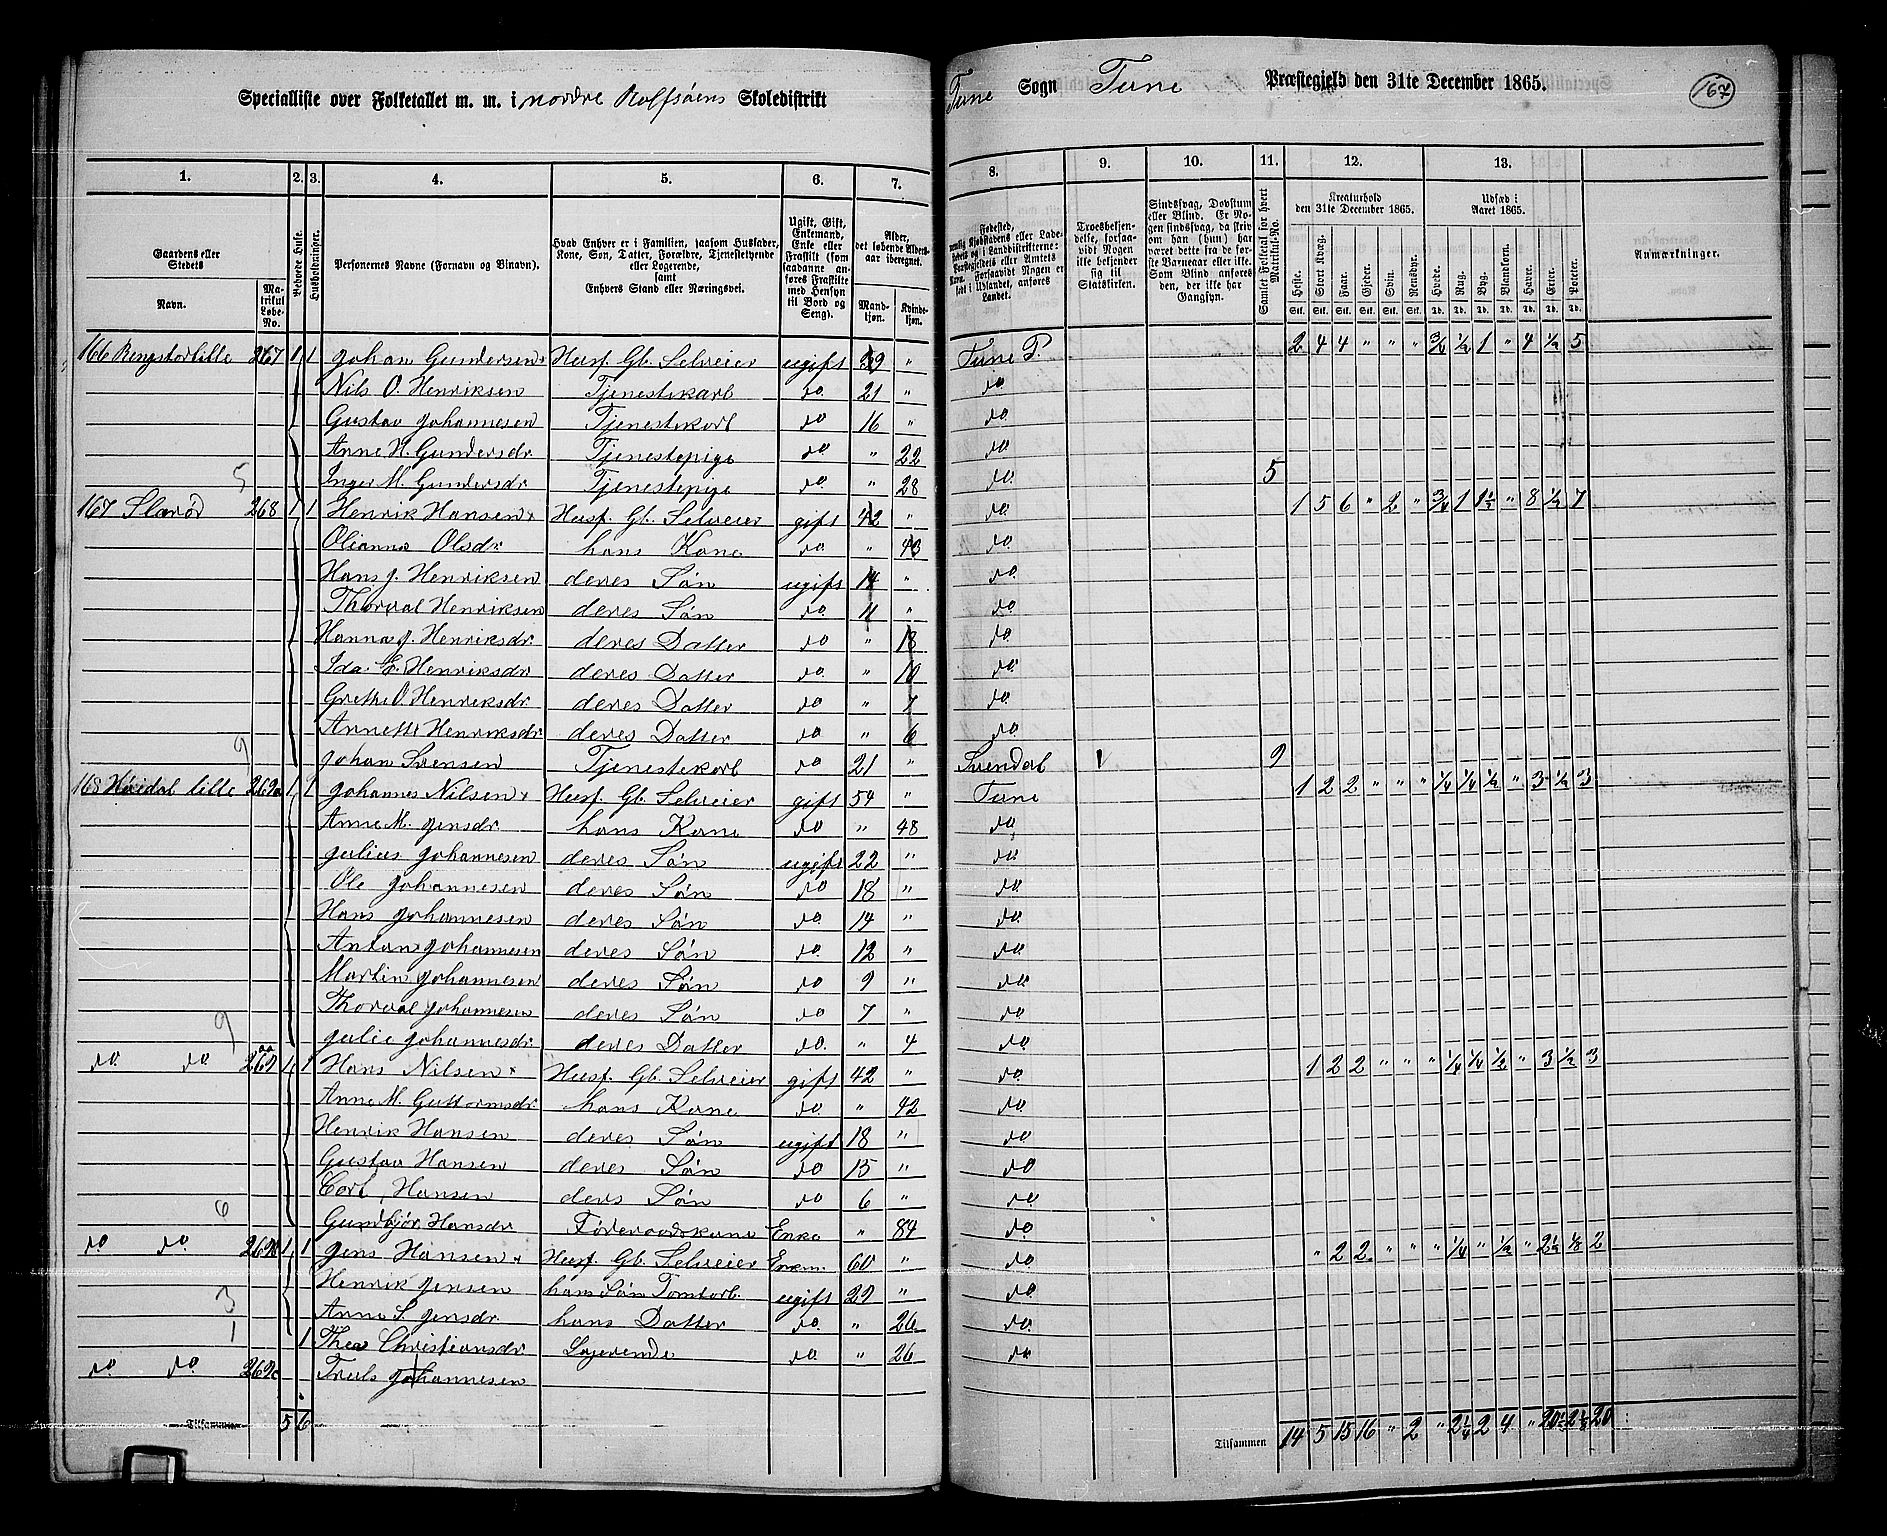 Specialliste over Folketallet m. m. i nordre Rolfsøens Skoledistrikt Tune Sogn Tune Præstegjeld den 31te December 1865. 167
1. 2. 3. 4. 5. 6. 7. 8. 9. 10. 11. 12. 13.
Gaardens eller Stedets Navn. Matrikul Løbe-No. Beboede Huse. Husholdninger. Personernes Navne (Fornavn og Binavn). Hvad Enhver er i Familien, saasom Husfader, Kone, Søn, Datter, Forældre, Tjenestetyende eller Logerende, samt Enhvers Stand eller Næringsvei. Ugift, Gift, Enkemand, Enke eller Fraskilt (som saadanne anføres Fraskilte med Hensyn til Bord og Seng). Alder, det løbende Alders-aar iberegnet. Mandkjøn. Kvindekjøn.
Troesbekjendelse, forsaavidt Nogen ikke bekjender sig til Statskirken. Sindssvag, Døvstum eller Blind. Er Nogen sindssvag, da skrives om han (hun) har været dette fra de første Barneaar eller ikke. Som Blind anføres den, der ikke har Gangsyn. Samlet Folketal for hvert Matrikul-No. Kreaturhold den 31te December 1865. Heste. Stort Kvæg. Faar. Gjeder. Svin. Rensdyr. Udsæd i Aaret 1865. Hvede. Rug. Byg. Blandkorn. Havre. Erter. Poteter. Anmærkninger.
166 267 1 1 Johan Gundersen Husf. Gb. Selveier ugift 39 " Tune P. 2 4 4 " " " 3/4 1/2 1 " 4 1/2 5
Nils O. Henriksen Tjenestekarl do 21 " do
Gustav Johannesen Tjenestekarl do 16 " do
Anne H. Gundersdr Tjenestepige do " 22 do
5 Inger M. Gundersdr Tjenestepige do " 28 do 5
167 268 1 1 Henrik Hansen Husf. Gb. Selveier gift 42 " do 1 5 6 " 2 " 3/4 1 1 1/2 " 8 1/2 7
Olianna Olsdr hans Kone do " 43 do
Hans J. Henriksen deres Søn ugift 14 " do
Thorval Henriksen deres Søn do 11 " do
Hanna J. Henriksdr deres Datter do " 18 do
Ida Henriksdr deres Datter do " 10 do
Grethe O. Henriksdr. deres Datter do " 7 do
Annette Henriksdr deres Datter do " 6 do
9 Johan Svensen Tjenestekarl do 21 " 9
168 Høidal lille 269a 1 1 Johannes Nilsen Husf. Gb. Selveier gift 54 " Tune 1 2 2 " " " 1/4 1/4 1/2 " 3 1/2 3
Anne M. Jensdr. hans Kone do " 48 do
Julius Johannesen deres Søn ugift 22 " do
Ole Johannesen deres Søn do 18 " do
Hans Johannesen deres Søn do 14 " do
Anton Johannesen deres Søn do 12 " do
Martin Johannesen deres Søn do 9 " do
Thorval Johannesen deres Søn do 7 " do
9 Julie Johannesdr deres Datter do. " 4 do
do. do. 269aa 1 1 Hans Nilsen Husf. Gb. Selveier gift 42 " do 1 2 2 " " " 1/4 1/4 1/2 " 3 1/2 3
Anne M. Guttormsdr. hans Kone do. " 42 do
Henrik Hansen deres Søn ugift 18 " do
Gustav Hansen deres Søn do 15 " do
Carl Hansen ders Søn do 6 " do
6 Gunbjør Hansdr Føderaadskone Enke " 84 do
do do. 269b 1 1 Jens Hansen Husf. Gb. Selveier Enkm. 60 " do " 2 2 " " " 1/4 " 1/2 " 2 1/2 1/8 2
Henrik Jensen hans Søn Tomtarb. ugift 29 " do
3 Anne S. Jensdr hans Datter do. " 26 do
1 1 Thea Christiansdr. Logerende do. " 26 do
do. do. 269c Truls Johannesen
Tilsammen 5 6 Tilsammen 14 5 15 16 " 2 " 2 1/4 2 4 " 20 1/2 2 1/8 20